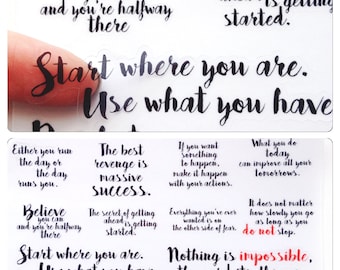 and you're halfway
there
is getting
started.
Start where you are.
Use what you have
Either you run
the day or
the day
runs you.
The best
revenge is
massive
success.
If you want
something
to happen,
make it happen
with your actions.
What you do
today
can improve all your
tomorrows.
Believe
you can
and you're halfway
there
The secret of getting
ahead is getting
started.
Everything you've ever
wanted is on
the other side of fear.
It does not matter
how slowly you go
as long as you
do not stop.
Start where you are.
Nothing is impossible,